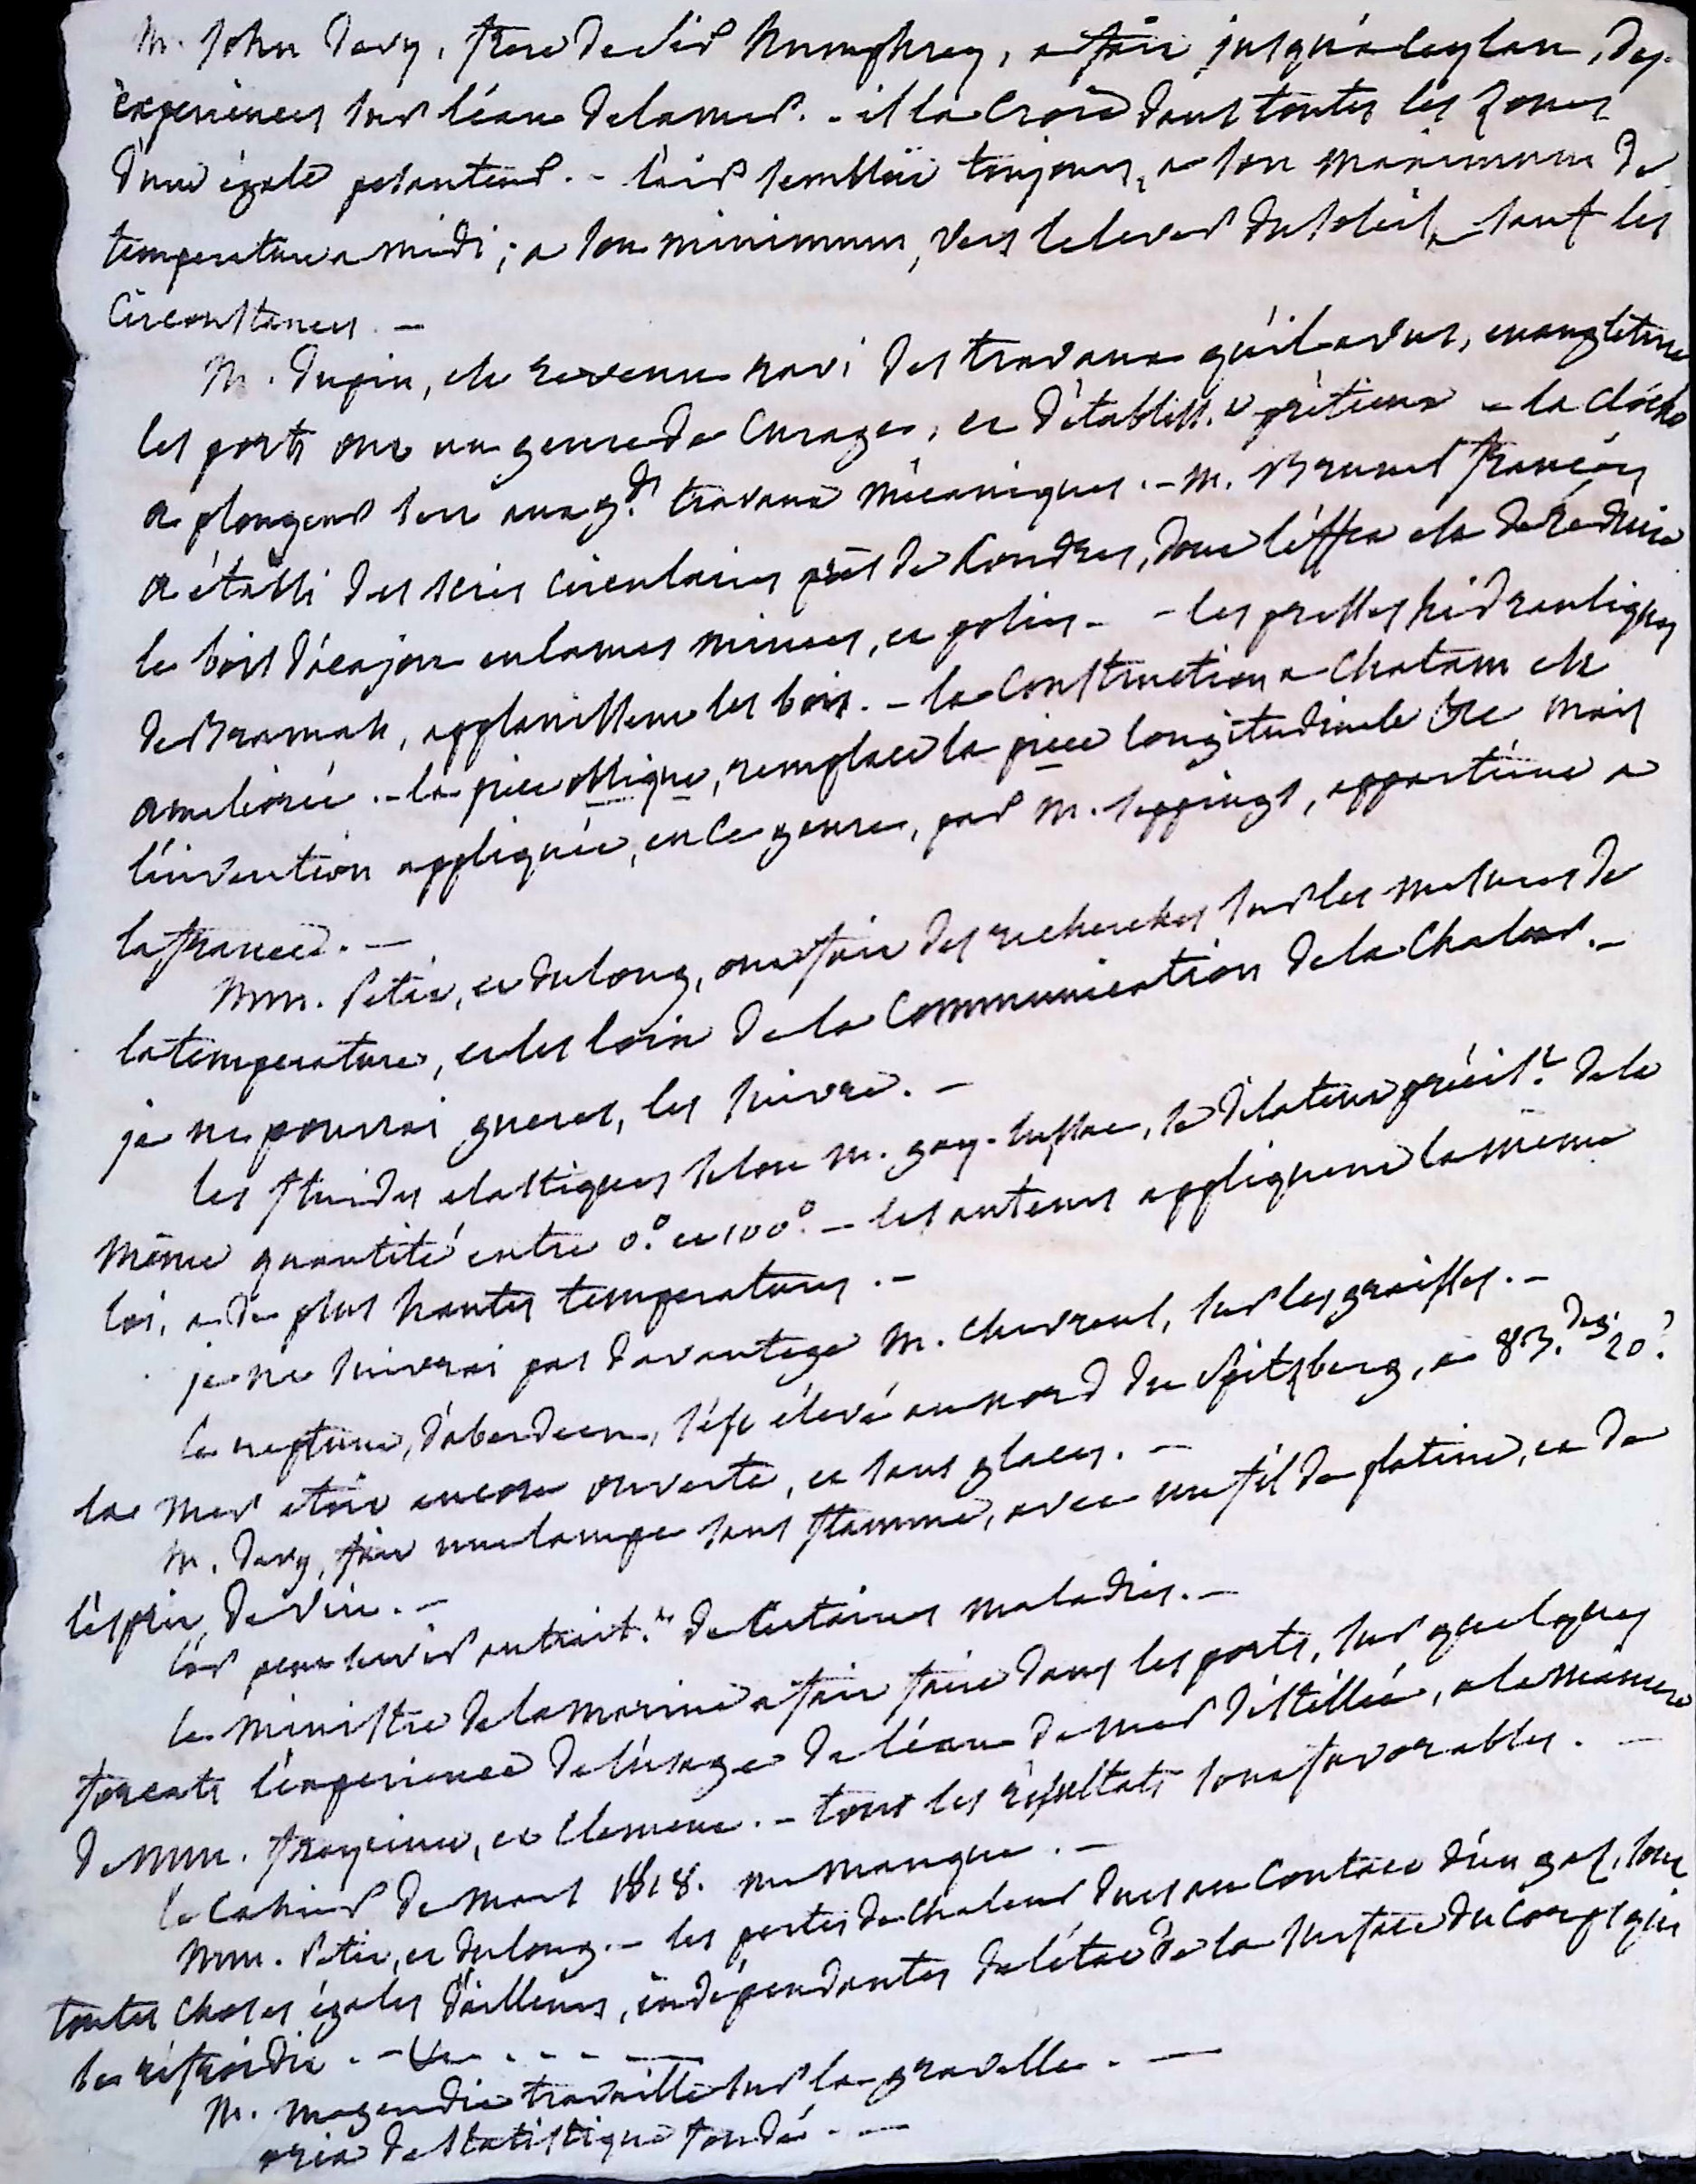 M. John Davy, frere de Sir Humphrey, a fait jusqu'a Ceylan, des
experiences sur l'eau de la mer. - il la croit dans toutes les zones
d'une égale pesanteur. - l'air sembloit toujours, a son maximum de
temperature a midi ; a son minimum, vers le lever du soleil, sauf les
circonstances. -
M. Dupin, est revenu ravi des travaux qu'il a vus, en angleterre
les ports ont un genre de curage, et d'établiss.t prétieux - la clôche
a plongeur sert aux g.ds travaux mécaniques. - M. Brunel françois
a établi des scies circulaires près de Londres, dont l'effet est de réduire
le bois d'acajou en lames minces, et polies - - les presses hidrauliques
de Bramah, applanissent les bois. - la construction a Chatam est
ameliorée. - la piece oblique, remplace la piece longitudinale &c mais
l'invention appliquée, en ce genre, par M. Seppings, appartient a
la france. -
MM. Petit, et dulong, ont fait des recherches sur les mesures de
la temperature, et les loix de la communication de la chaleur. -
je ne pourrai gueres, les suivre. -
les fluides elastiques selon M. gay-lussac, se dilatent précis.t de la
même quantité entre 0.° et 100.° - les auteurs appliquent la même
loi, a de plus hautes temperatures. -
je ne suivrai pas davantage M. chevreul, sur les graisses. -
le neptune, d'aberdeen, s'est élevé au nord du Spitzberg, a 83.deg. 20.'
la mer etoit encore ouverte, et sans glaces. -
M. Davy, fait une lampe sans flamme, avec un fil de platine, et de
l'esprit de vin. -
l'or peut servir au trait.t de certaines maladies. -
le ministre de la marine a fait faire dans les ports, sur quelques
forcats l'experience de l'usage de l'eau de mer distillée, a la maniere
de MM. freycinet, et Clement. - tous les résultats sont favorables. -
le cahier de mars 1818. me manque. -
MM. Petit, et dulong. - les pertes de chaleur dues au contact d'un gaz, sont
toutes choses égales d'ailleurs, indépendantes de l'état de la surface du corps qui
se refroidit. - &c - - - -
M. magendie travaille sur la gravelle. -
prix de statistique fondé. -